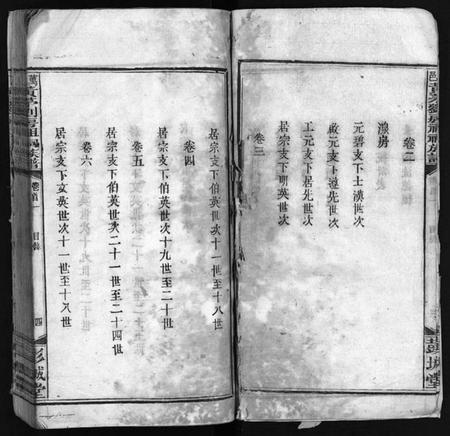 卷二
淑房
元碧支下士漢世次
啟元支下遵先世次
工元支下居先世次
居宗支下明英世次
卷三
居宗支下伯英世次十一世至十八世
卷四
居宗支下伯英世次十九世至二十世
卷五
居宗支下伯英世次二十一世至二十四世
卷六
居宗支下文英世次十一世至十八世
卷首
目錄
四
彭城堂
彭城堂